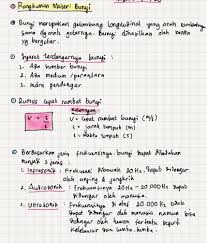 Rangkuman Materi Bunyi
Bunyi merupakan gelombang longitudinal yang arah rambatnya
sama dgn arah getarnya. Bunyi dihasilkan oleh benda
yg bergetar.
Syarat terdengarnya bunyi :
1. Ada sumber bunyi
2. Ada medium / perantara
3. Indra pendengar
Rumus cepat rambat bunyi
Keterangan
V = s/t
V = cepat rambat bunyi (m/s)
s = jarak tempuh (m)
t = waktu tempuh (s)
Berdasarkan jenis frekuensinya. bunyi dapat dibedakan
menjadi 3 jenis
1. Infrasonik : Frekuensi dibawah 20 Hz. dapat didengar
oleh anjing & jangkrik
2. Audiosonik : Frekuensinya 20 Hz - 20.000 Hz. dapat
didengar oleh manusia.
3. Ultrasonik : Frekuensinya di atas 20.000 Hz. tidak
dapat didengar oleh manusia namun bisa
didengar oleh hewan tertentu seperti
kelelawar dan lumba-lumba.